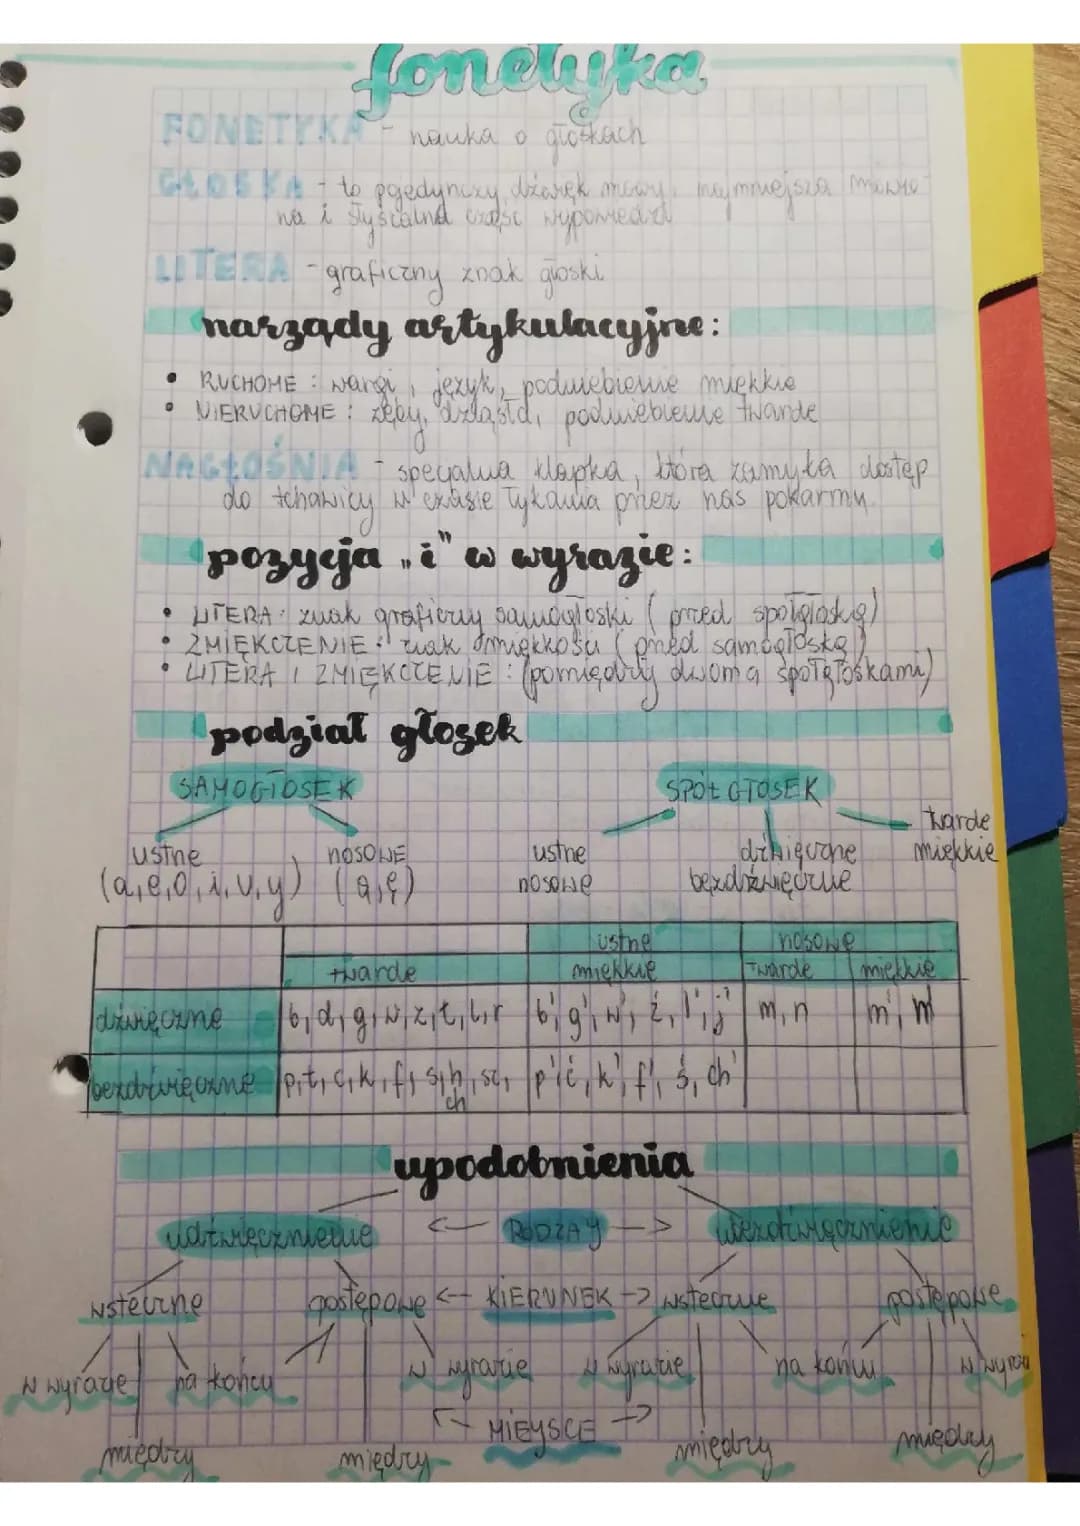 fonetyka
FONETYKA - nauka o głoskach
GŁOSKA - to pojedynczy dźwięk mowy, najmniejsza mówio-
na i słyszalna część wypowiedzi
LITERA - graficzny znak głoski
narządy artykulacyjne:
• RUCHOME: wargi, język, podniebienie miękkie
• NIERUCHOME: zęby, dziąsła, podniebienie twarde
NAGŁOŚNIA - specjalna klapka, która zamyka dostęp
do tchawicy w czasie łykania przez nas pokarmu.
pozycja „i" w wyrazie:
• LITERA: znak graficzny samogłoski (przed spółgłoską)
• ZMIĘKCZENIE: znak miękkości (przed samogłoską)
• LITERA I ZMIĘKCZENIE: (pomiędzy dwoma spółgłoskami)
podział głosek
SAMOGŁOSEK SPÓŁGŁOSEK
ustne nosowe ustne dźwięczne twarde
(a,e,o,i,u,y) (ą,ę) nosowe bezdźwięczne miękkie
ustne nosowe
twarde miękkie twarde miękkie
dźwięczne b, d, g, w, z, ł, l, r b', g', w', ź, l', j' m, n m',
bezdźwięczne p, t, c, k, f, s, h, sz, p', ć, k', f', ś, ch'
ch
upodobnienia
udźwięcznienie <- RODZAJ -> ubezdźwięcznienie
wsteczne postępowe <- KIERUNEK -> wsteczne postępowe
w wyrazie na końcu w wyrazie w wyrazie na końcu w wyrazie
<- MIEJSCE ->
między między między między